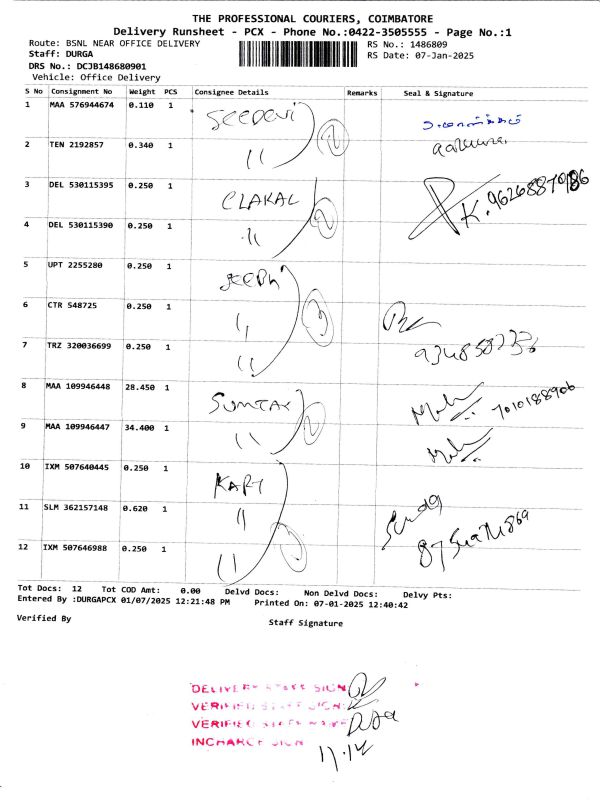 THE PROFESSIONAL COURIERS, COIMBATORE
Delivery Runsheet - PCX - Phone No.:0422-3505555 - Page No.:1
Route: BSNL NEAR OFFICE DELIVERY RS No.: 1486809
Staff: DURGA RS Date: 07-Jan-2025
DRS No.: DCJB148680901
Vehicle: Office Delivery
S No Consignment No Weight PCS Consignee Details Remarks Seal & Signature
1 MAA 576944674 0.110 1
2 TEN 2192857 0.340 1 "
3 DEL 530115395 0.250 1 K. 9626887986
4 DEL 530115390 0.250 1 "
5 UPT 2255280 0.250 1
6 CTR 548725 0.250 1 "
7 TRZ 320036699 0.250 1 "
8 MAA 109946448 28.450 1 7010188906
9 MAA 109946447 34.400 1 "
10 IXM 507640445 0.250 1
11 SLM 362157148 0.620 1 "
12 IXM 507646988 0.250 1 "
Tot Docs: 12 Tot COD Amt: 0.00 Delvd Docs: Non Delvd Docs: Delvy Pts:
Entered By :DURGAPCX 01/07/2025 12:21:48 PM Printed On: 07-01-2025 12:40:42
Verified By Staff Signature
DELIVERY STAFF SIGN
VERIFIED STAFF SIGN:
VERIFIED STAFF NAME
INCHARGE SIGN